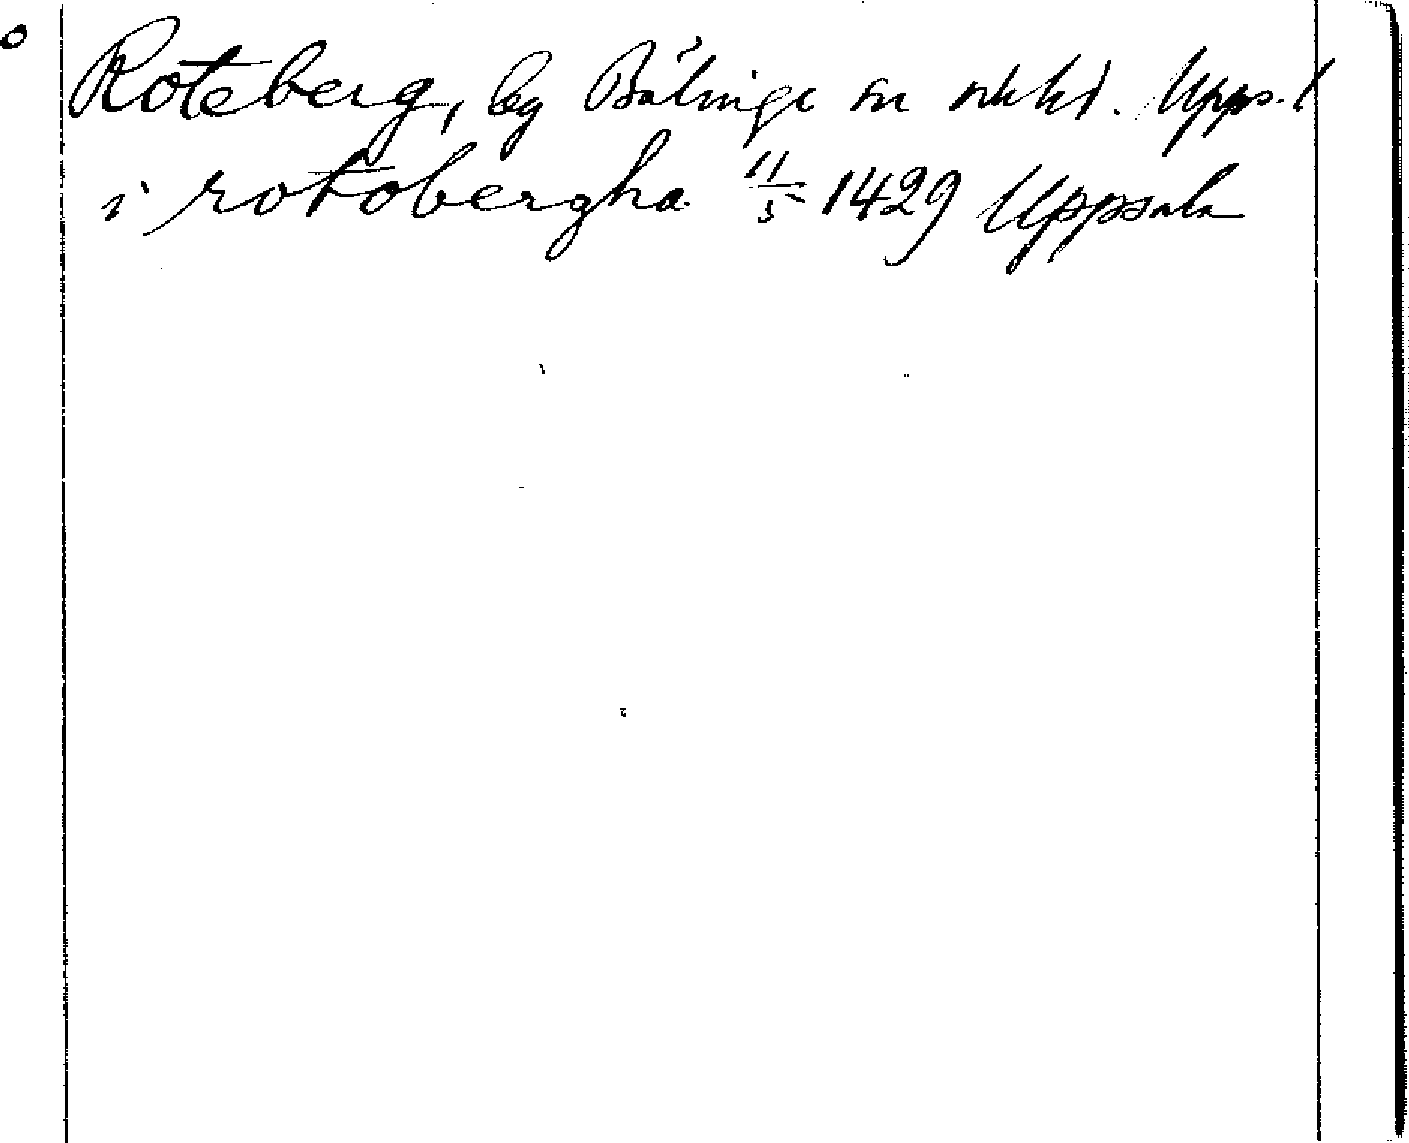 Roteberg, by Bälinge sn o hd. Upps. l
i rotobergha 11/5 1429 Uppsala